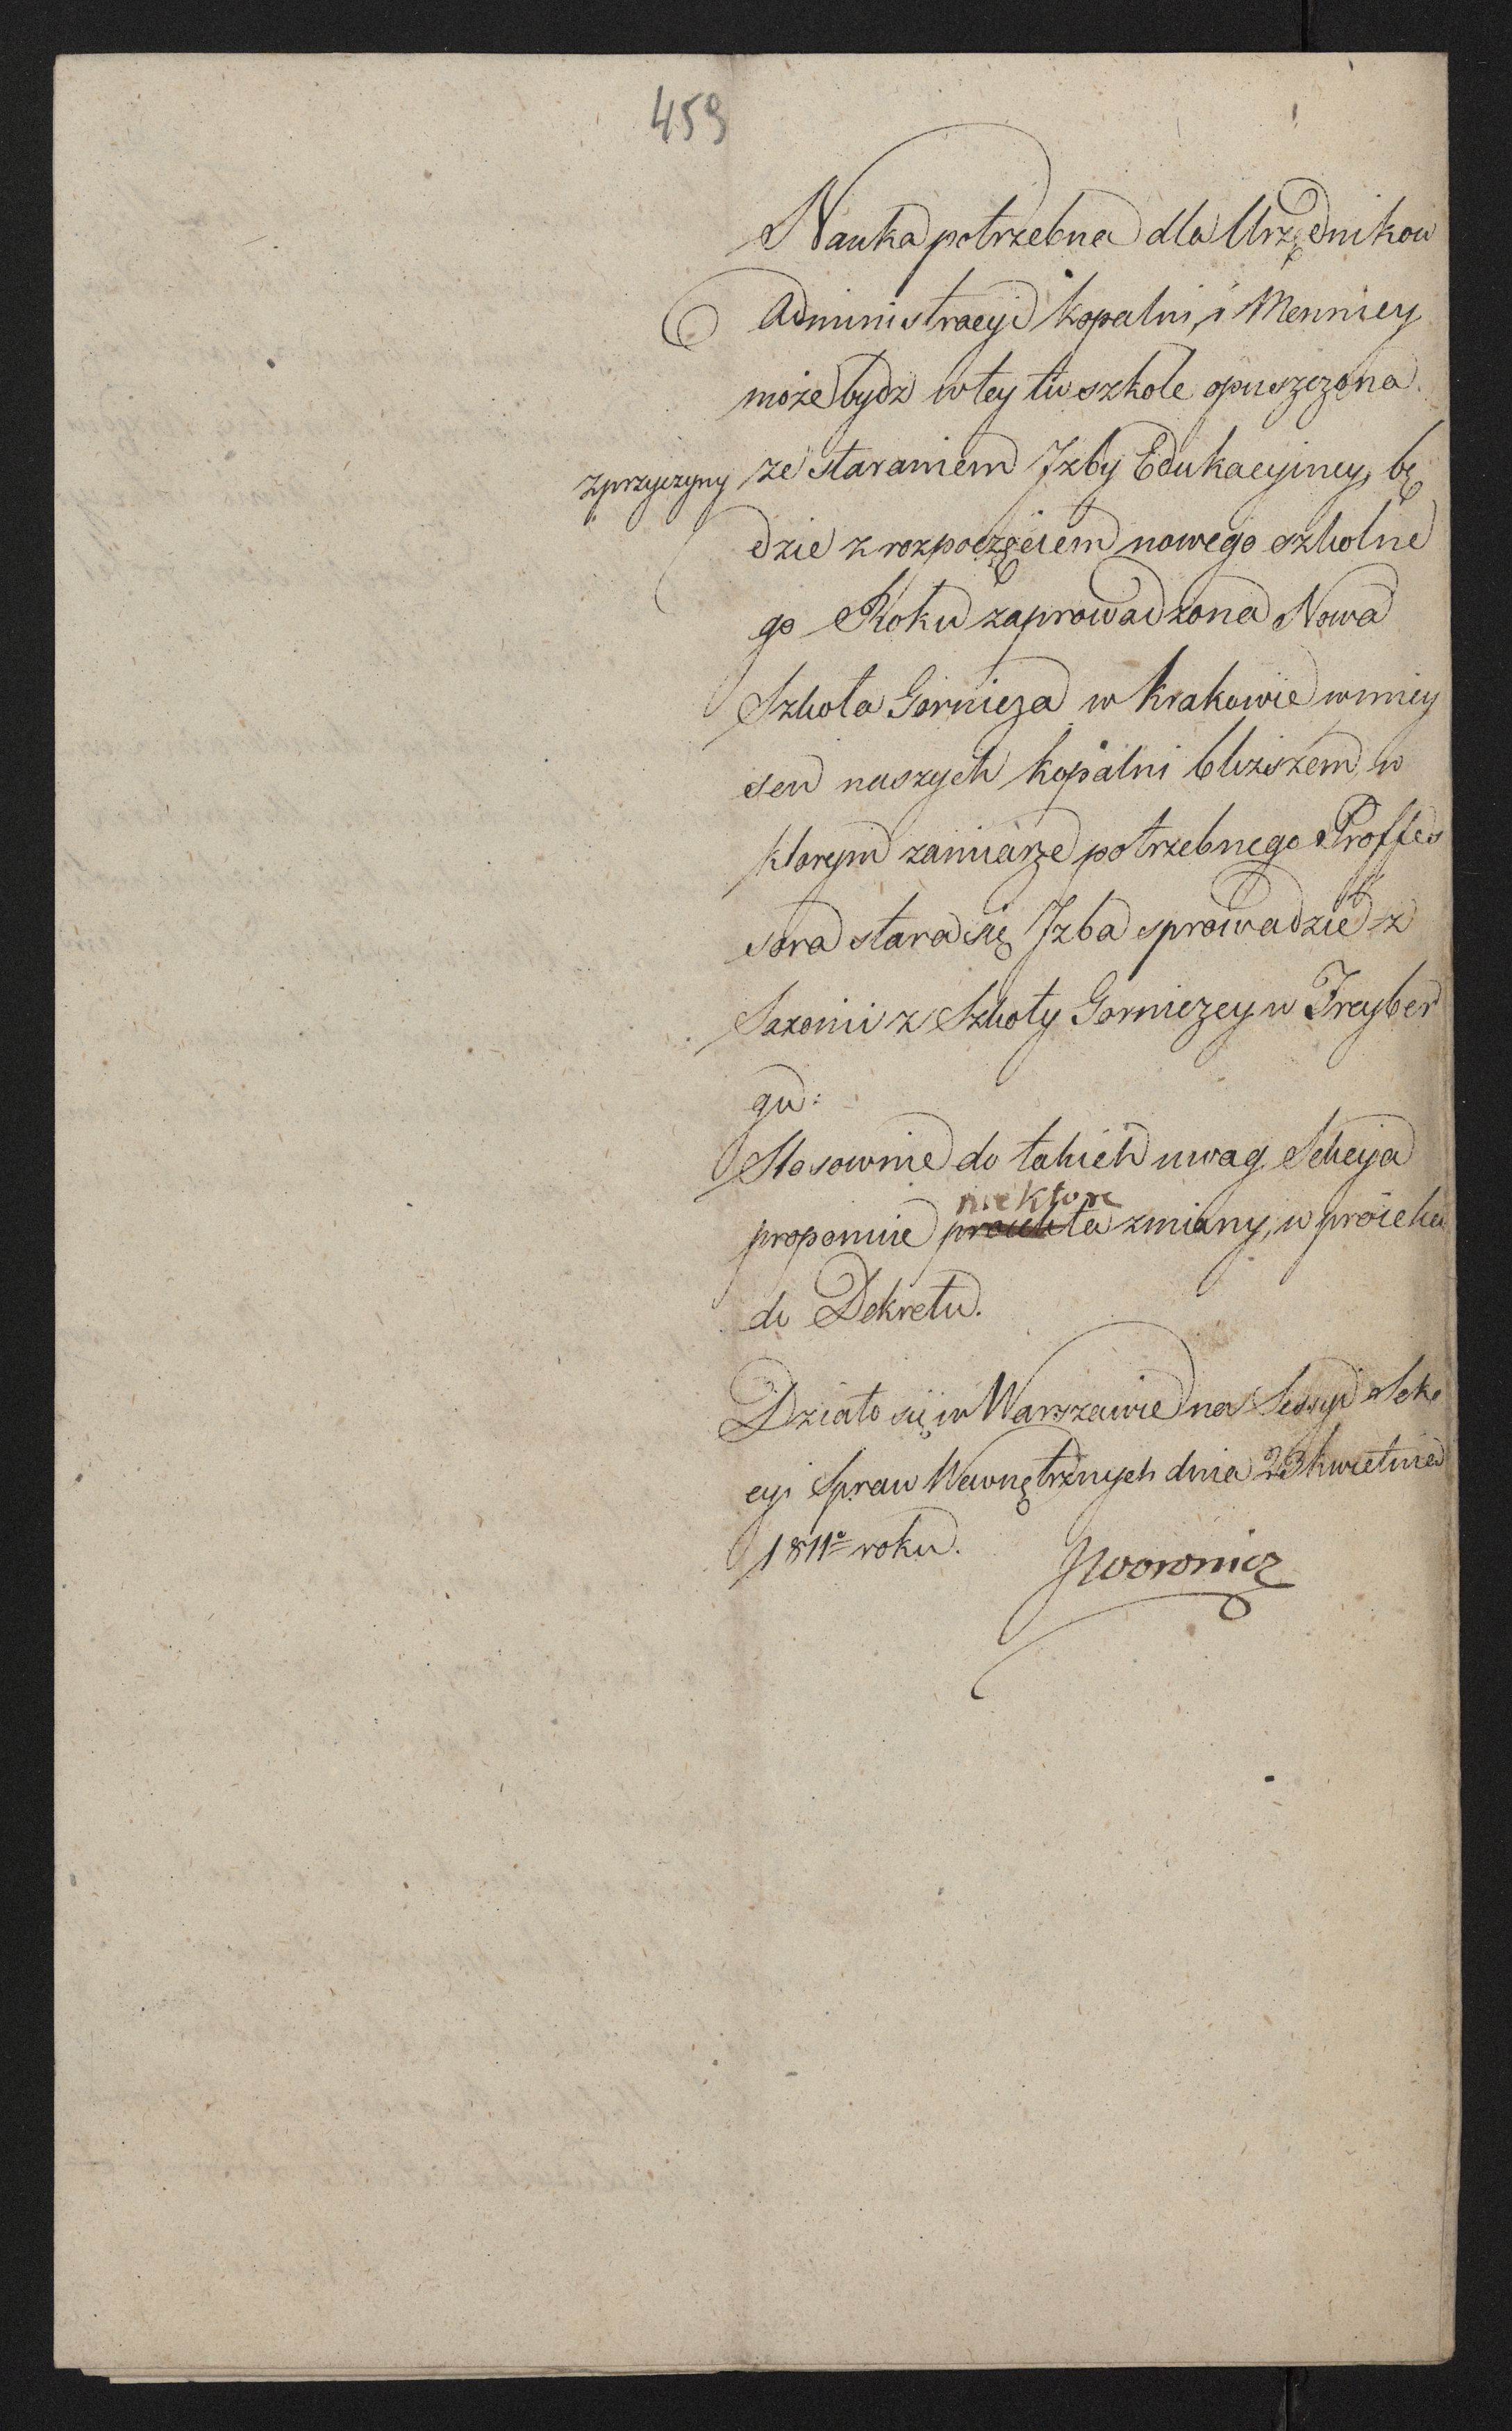 459
Nauka potrzebna dla Urzędnikow
Administracyi kopalni, i Mennicy
może bydz w tey tu szkole opuszczona
zprzyczyny że staraniem Jzby Edukacyiney, bę
dzie z rozpoczęciem nowego szkolne
go Roku zaprowadzona Nowa
Szkoła Gornicza w Krakowie w miey
scu naszych kopalni bliższem, w
ktorym zamiarze potrzebnego Proffes
sora stara się Jzba sprowadzić z
Saxonii z Szkoły Gorniczey w Freyber
gu:
Stosownie do takich uwag Sekcya
proponuie niektore zmiany, w proiekcie
do Dekretu.
Działo się w Warszawie na Sessyi Sek
cyi Spraw Wewnętrznych dnia 23 kwietnia
1811º roku. JWoronicz